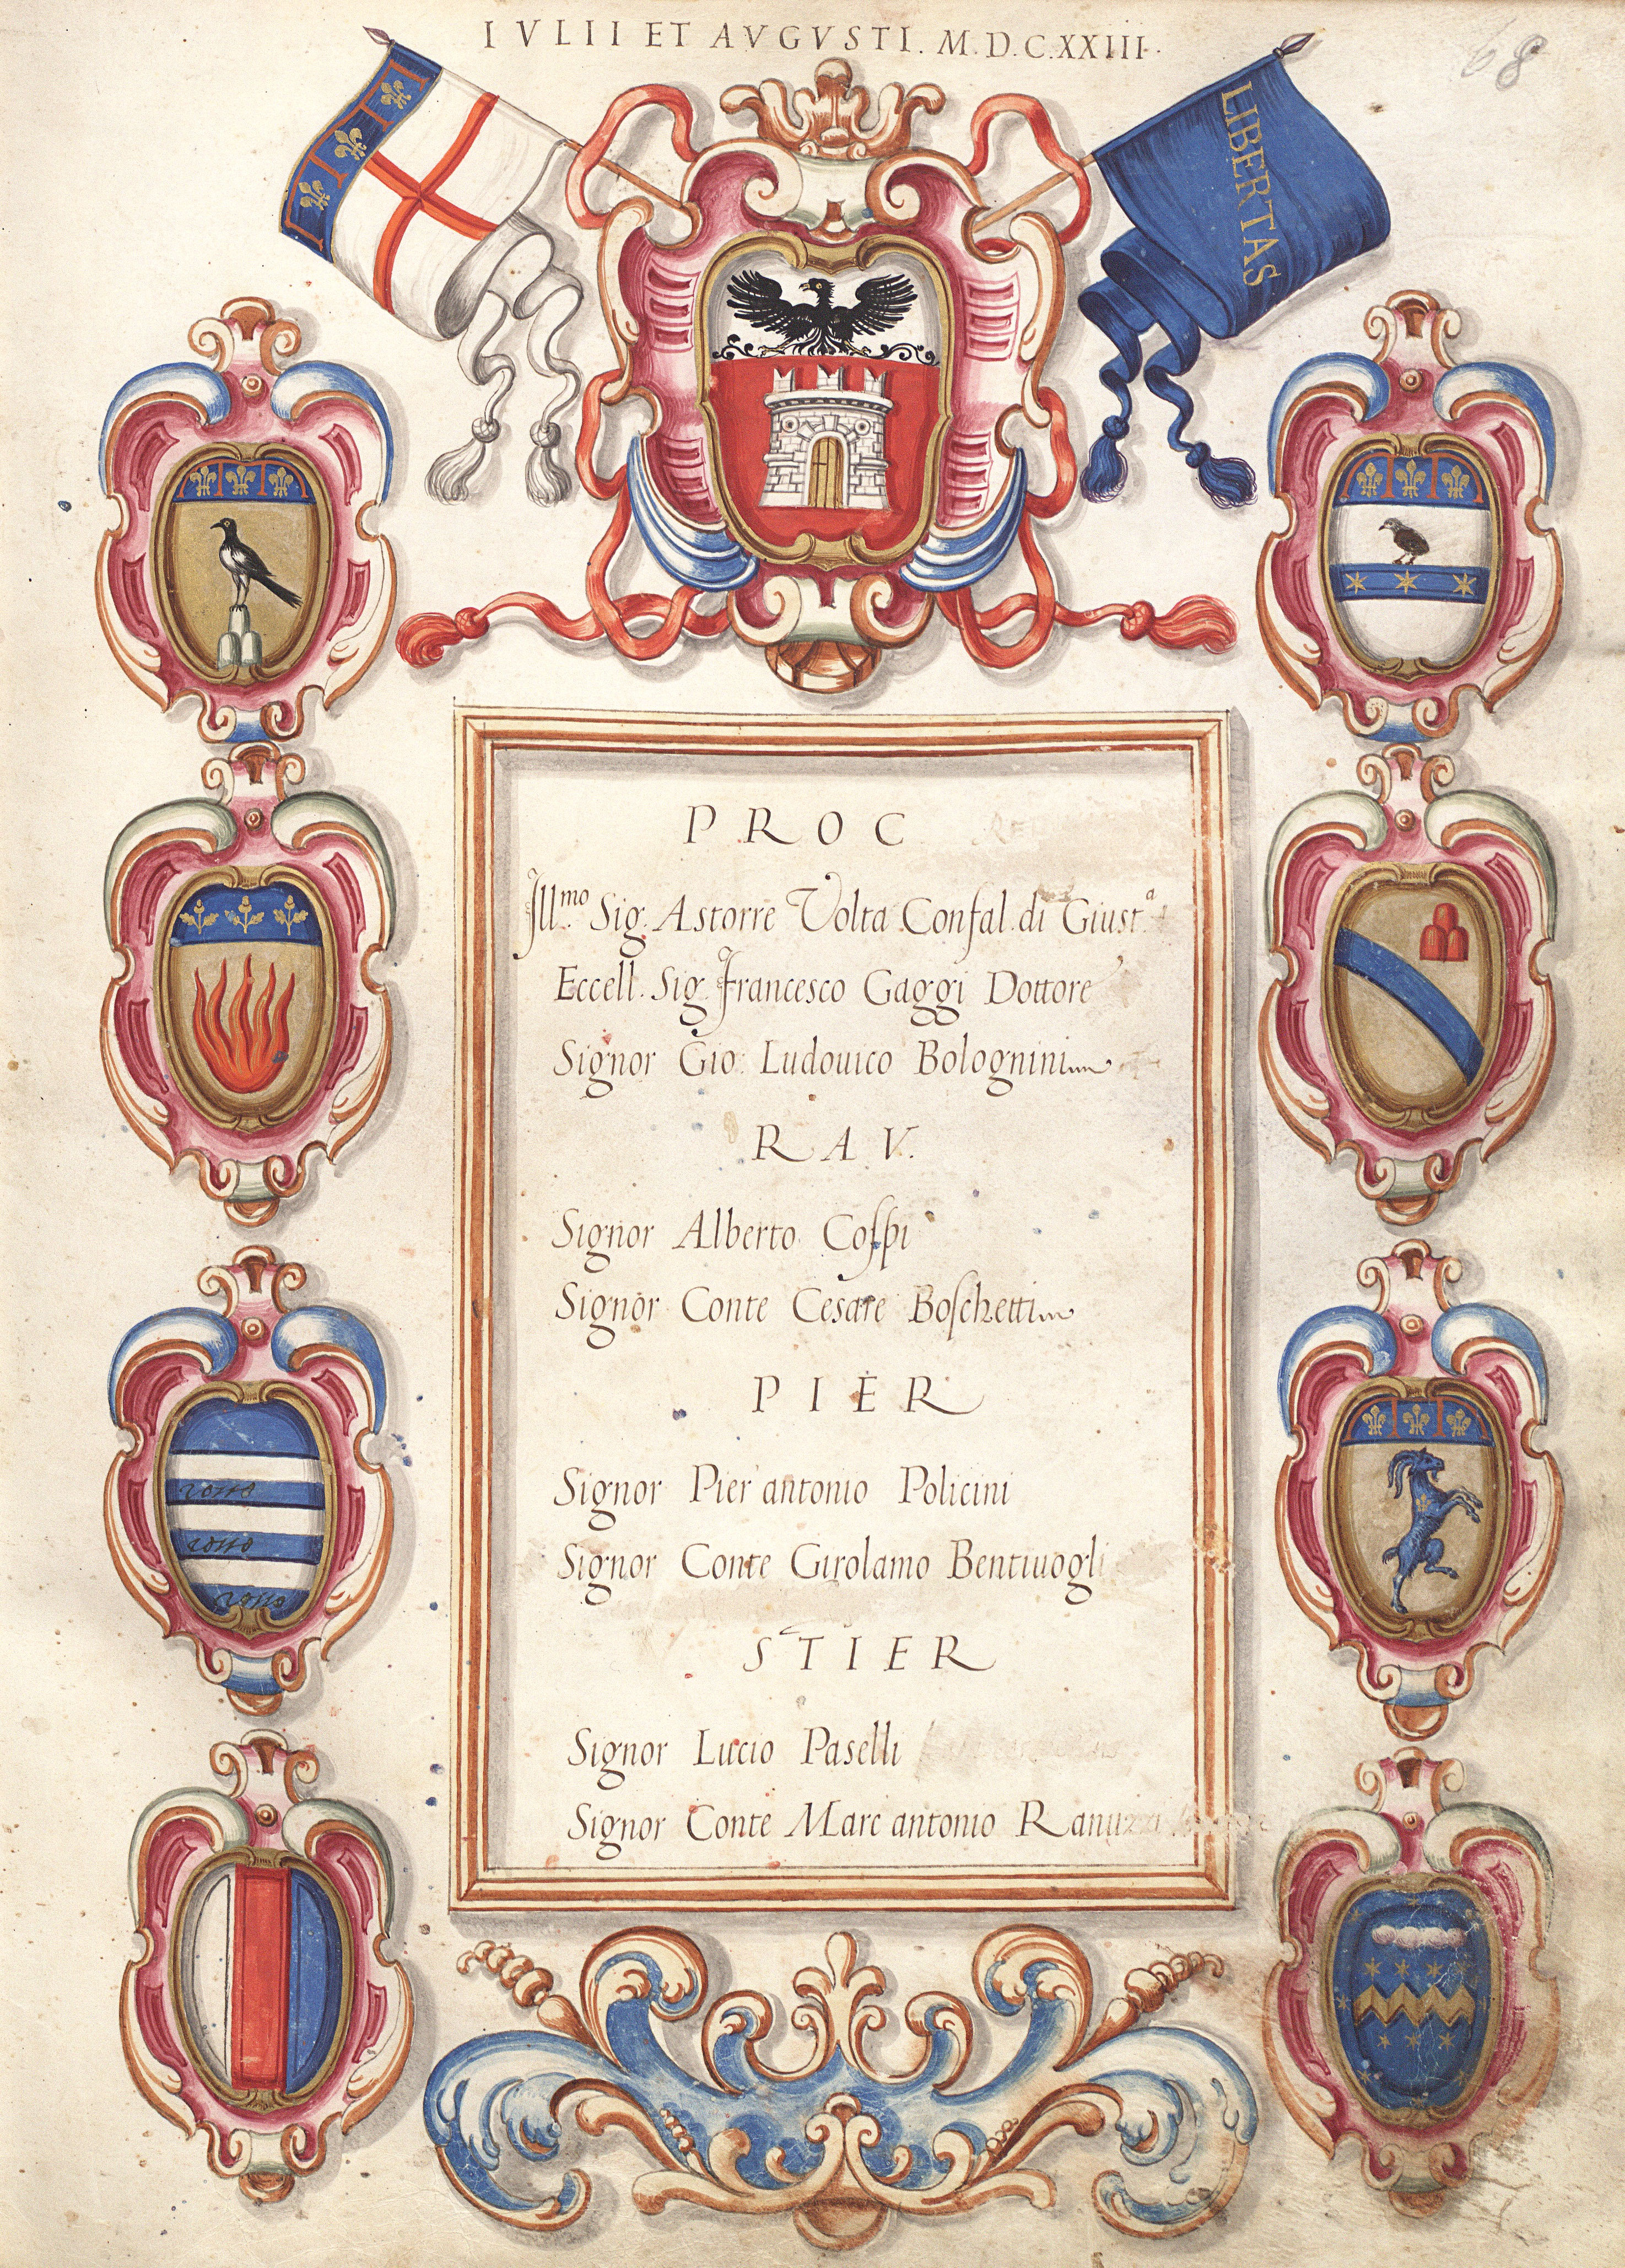 IVLII ET AVGVSTI. M.D.C.XXIII.
68
LIBERTAS
PROC
Ill.mo Sig. Astorre Volta Confal. di Giust.a
Eccell. Sig. Francesco Gaggi Dottore
Signor Gio: Ludouico Bolognini
RAV.
Signor Alberto Coſpi
Signor Conte Cesare Boſchetti
PIER
Signor Pier antonio Policini
Signor Conte Girolamo Bentiuogli
STIER
Signor Lucio Paselli
Signor Conte Marc antonio Ranuzzi
rosso
rosso
rosso